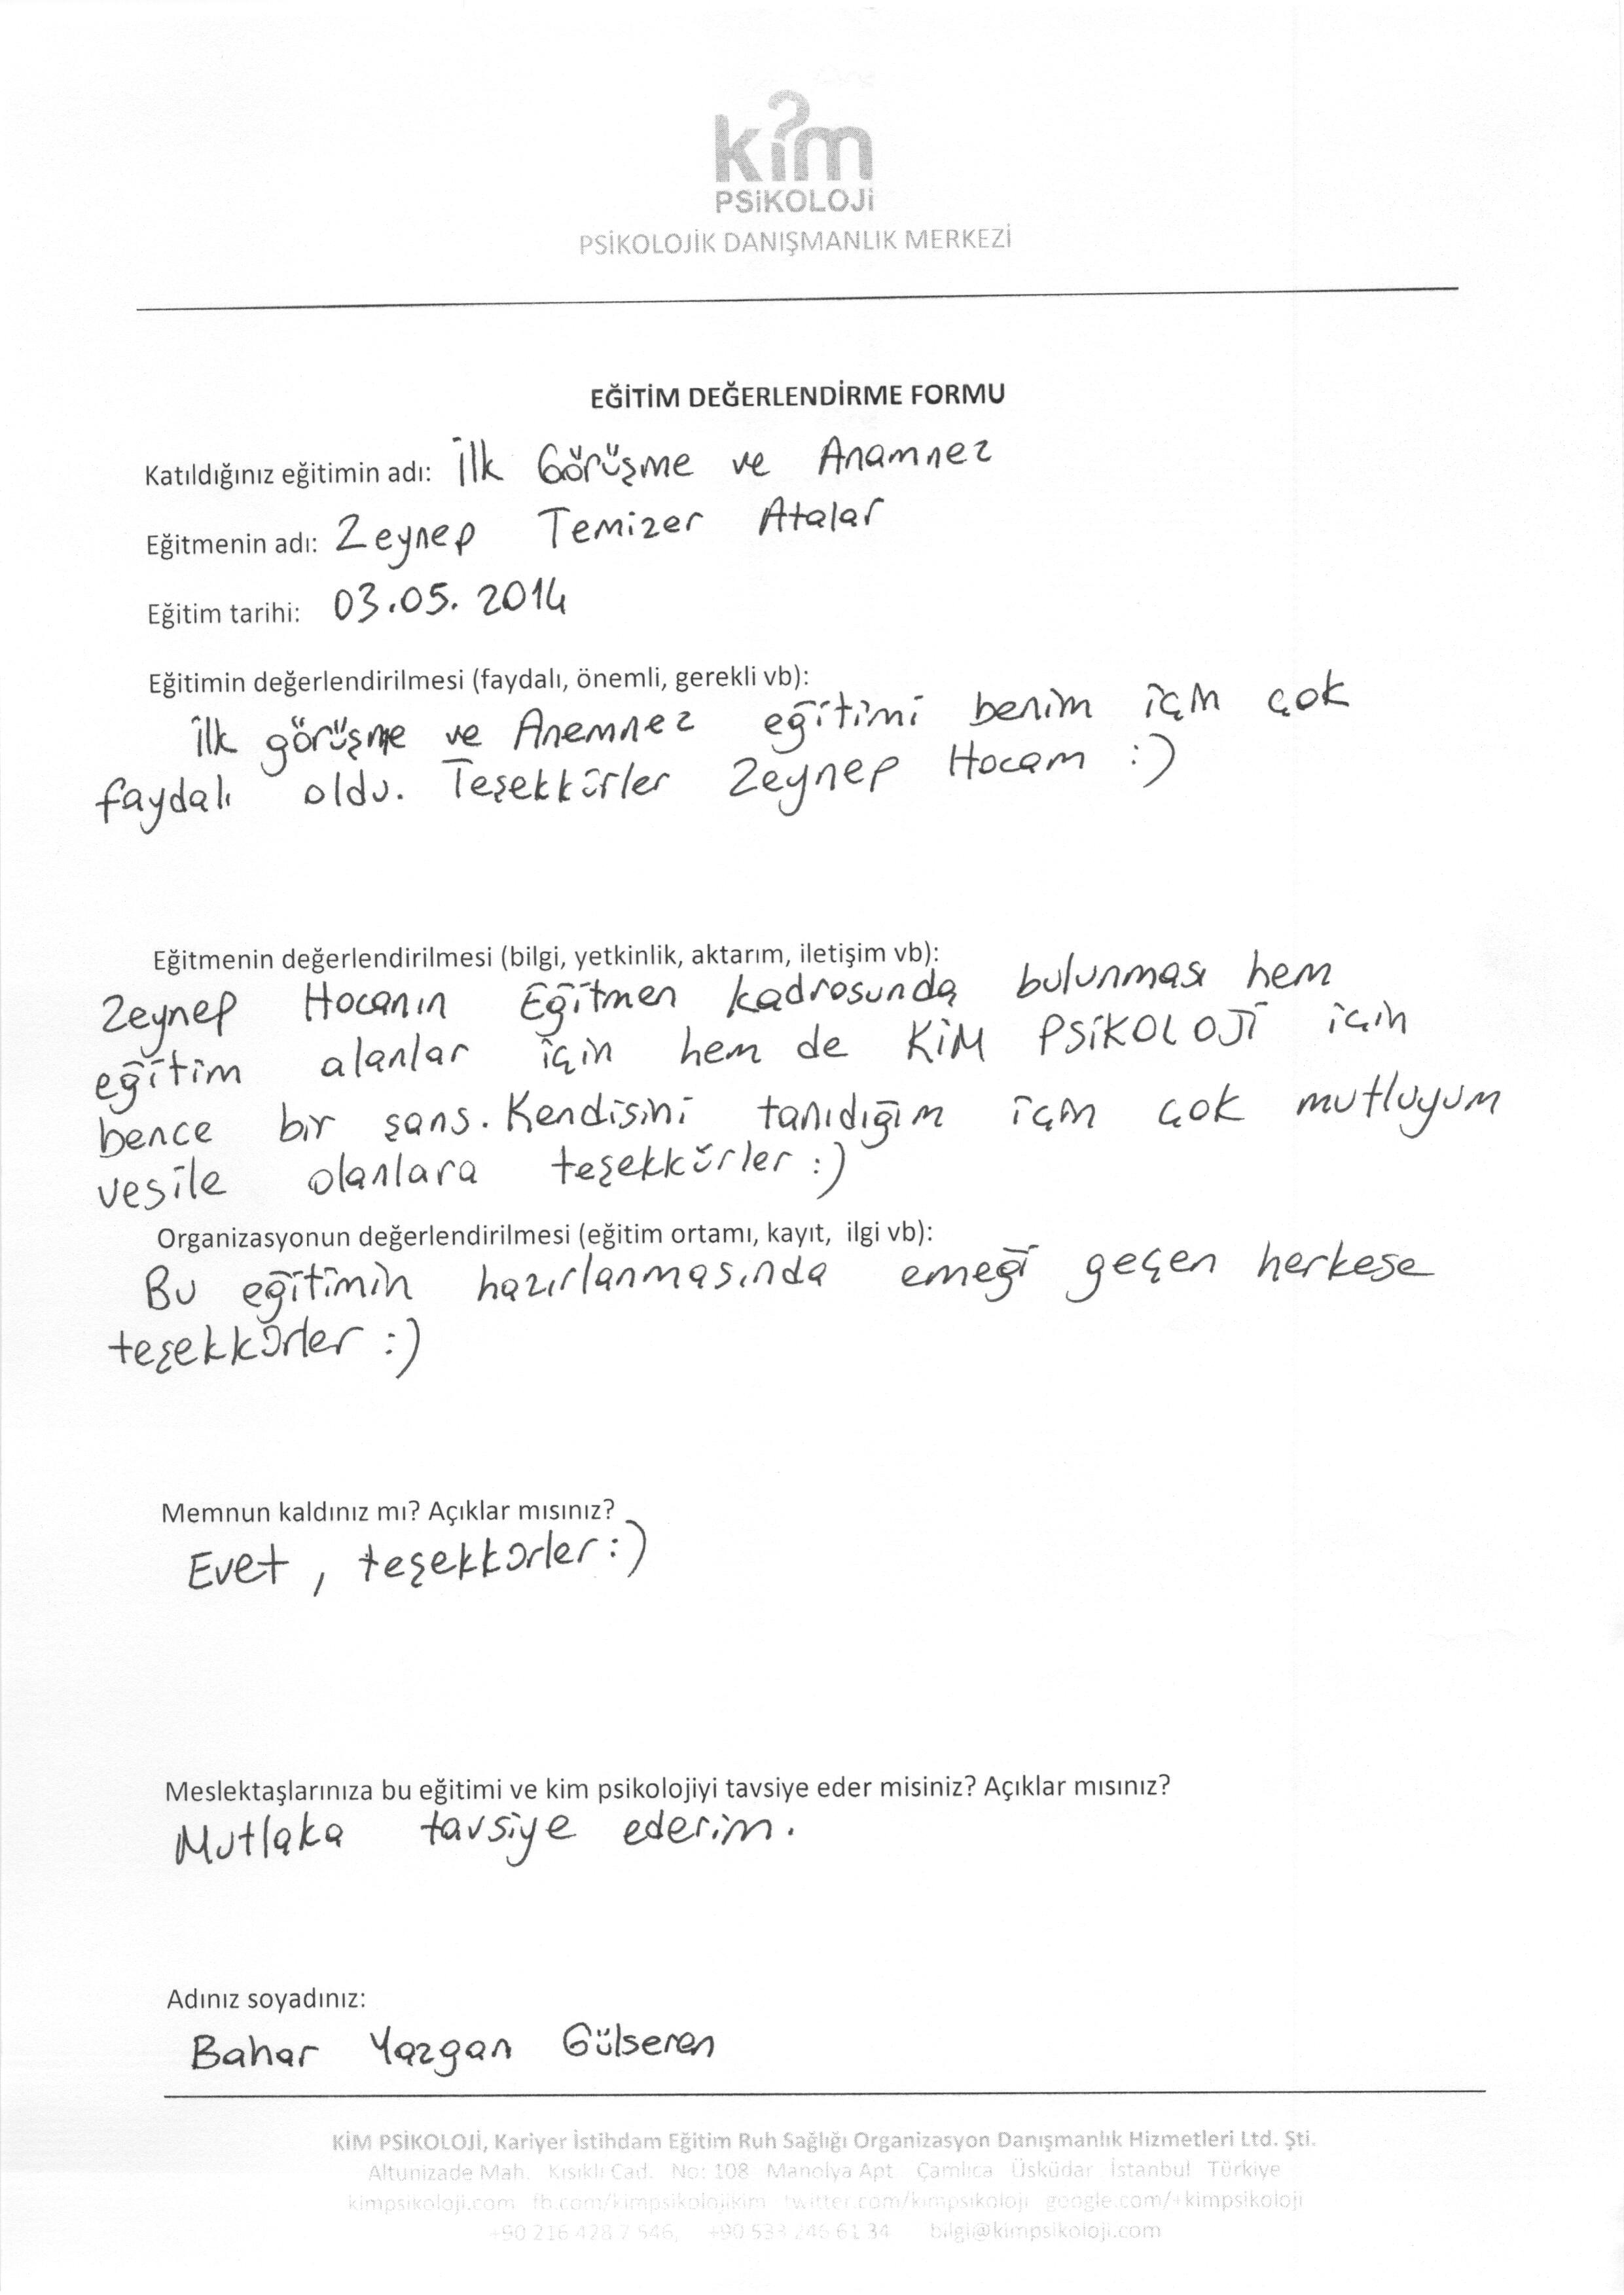 kim
PSiKOLOJi
PSİKOLOJİK DANIŞMANLIK MERKEZİ
EĞİTİM DEĞERLENDİRME FORMU
Katıldığınız eğitimin adı: İlk Görüşme ve Anamnez
Eğitmenin adı: Zeynep Temizer Atalar
Eğitim tarihi: 03.05.2014
Eğitimin değerlendirilmesi (faydalı, önemli, gerekli vb):
İlk görüşme ve Anemnez eğitimi benim için çok
faydalı oldu. Teşekkürler Zeynep Hocam :)
Eğitmenin değerlendirilmesi (bilgi, yetkinlik, aktarım, iletişim vb):
Zeynep Hocanın Eğitmen kadrosunda bulunması hem
eğitim alanlar için hem de KİM PSİKOLOJİ için
bence bir şans. Kendisini tanıdığım için çok mutluyum
vesile olanlara teşekkürler :)
Organizasyonun değerlendirilmesi (eğitim ortamı, kayıt, ilgi vb):
Bu eğitimin hazırlanmasında emeği geçen herkese
teşekkürler :)
Memnun kaldınız mı? Açıklar mısınız?
Evet, teşekkürler :)
Meslektaşlarınıza bu eğitimi ve kim psikolojiyi tavsiye eder misiniz? Açıklar mısınız?
Mutlaka tavsiye ederim.
Adınız soyadınız:
Bahar Yazgan Gülseren
KİM PSİKOLOJİ, Kariyer İstihdam Eğitim Ruh Sağlığı Organizasyon Danışmanlık Hizmetleri Ltd. Şti.
Altunizade Mah. Kısıklı Cad. No: 108 Manolya Apt Çamlıca Üsküdar İstanbul Türkiye
kimpsikoloji.com fb.com/kimpsikolojikim twitter.com/kimpsikoloji google.com/+kimpsikoloji
+90 216 428 7 546, +90 533 246 61 34 bilgi@kimpsikoloji.com